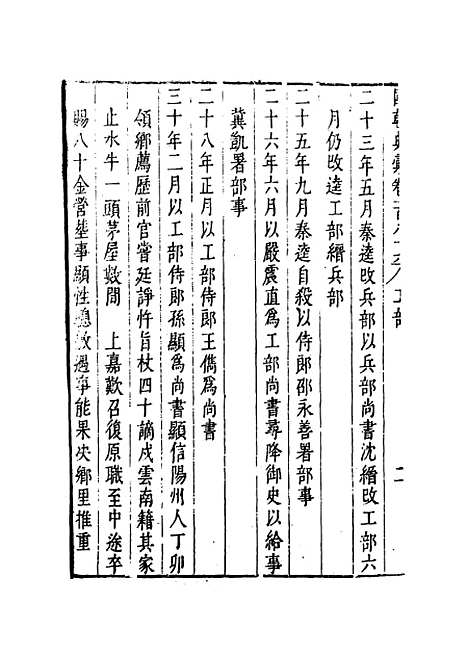 國朝典彙卷一百八十 工部 二
二十三年五月秦逵改兵部以兵部尚書沈縉改工部六
月仍改逵工部縉兵部
二十五年九月秦逵自殺以侍郎邵永善署部事
二十六年六月以嚴震直為工部尚書尋降御史以給事
冀凱署部事
二十八年正月以工部侍郎王儁為尚書
三十年二月以工部侍郎孫顯為尚書顯信陽州人丁卯
領鄉薦歷前官嘗廷諍忤旨杖四十謫戍雲南籍其家
止水牛一頭茅屋數間 上嘉歎召復原職至中途卒
賜八十金營塟事顯性聰敏遇事能果決鄉里推重